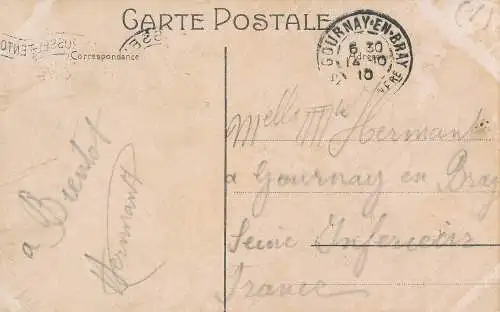 CARTE POSTALE
Correspondance
Adresse
GOURNAY-EN-BRAY
6 30
14 10
10
a Bientot
Hermant
Melle Hermant
a Gournay en Bray
Seine Inferieure
France